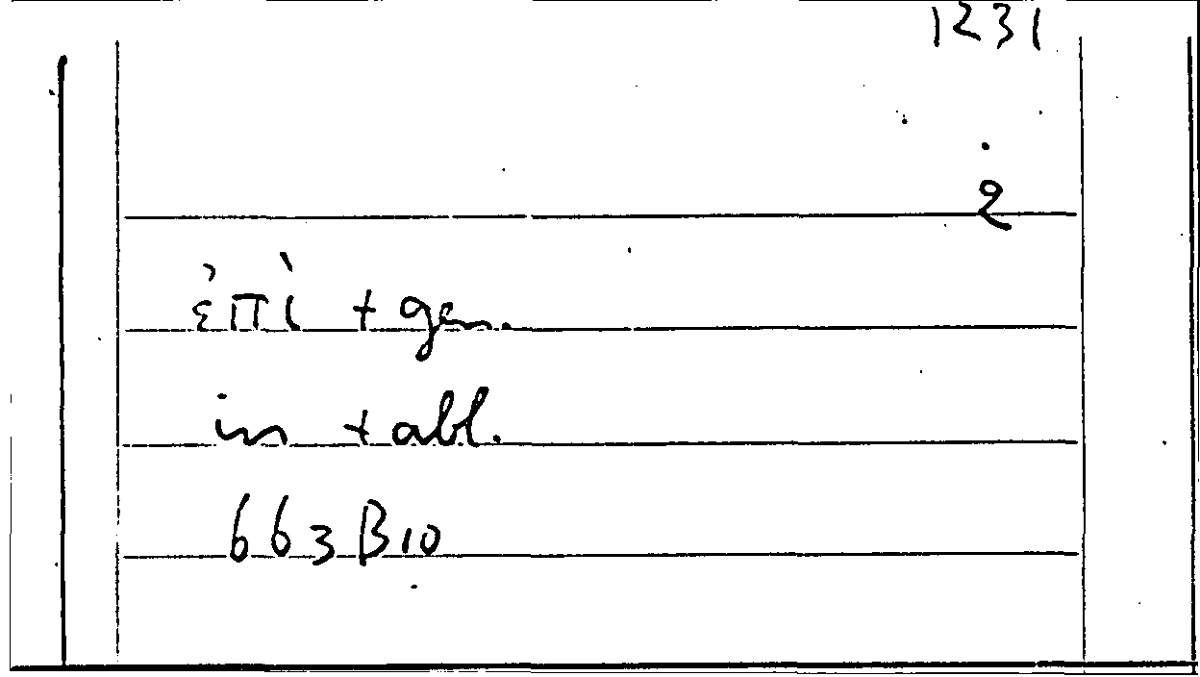 1231
2
ἐπὶ + gen.
in + abl.
663 B 10